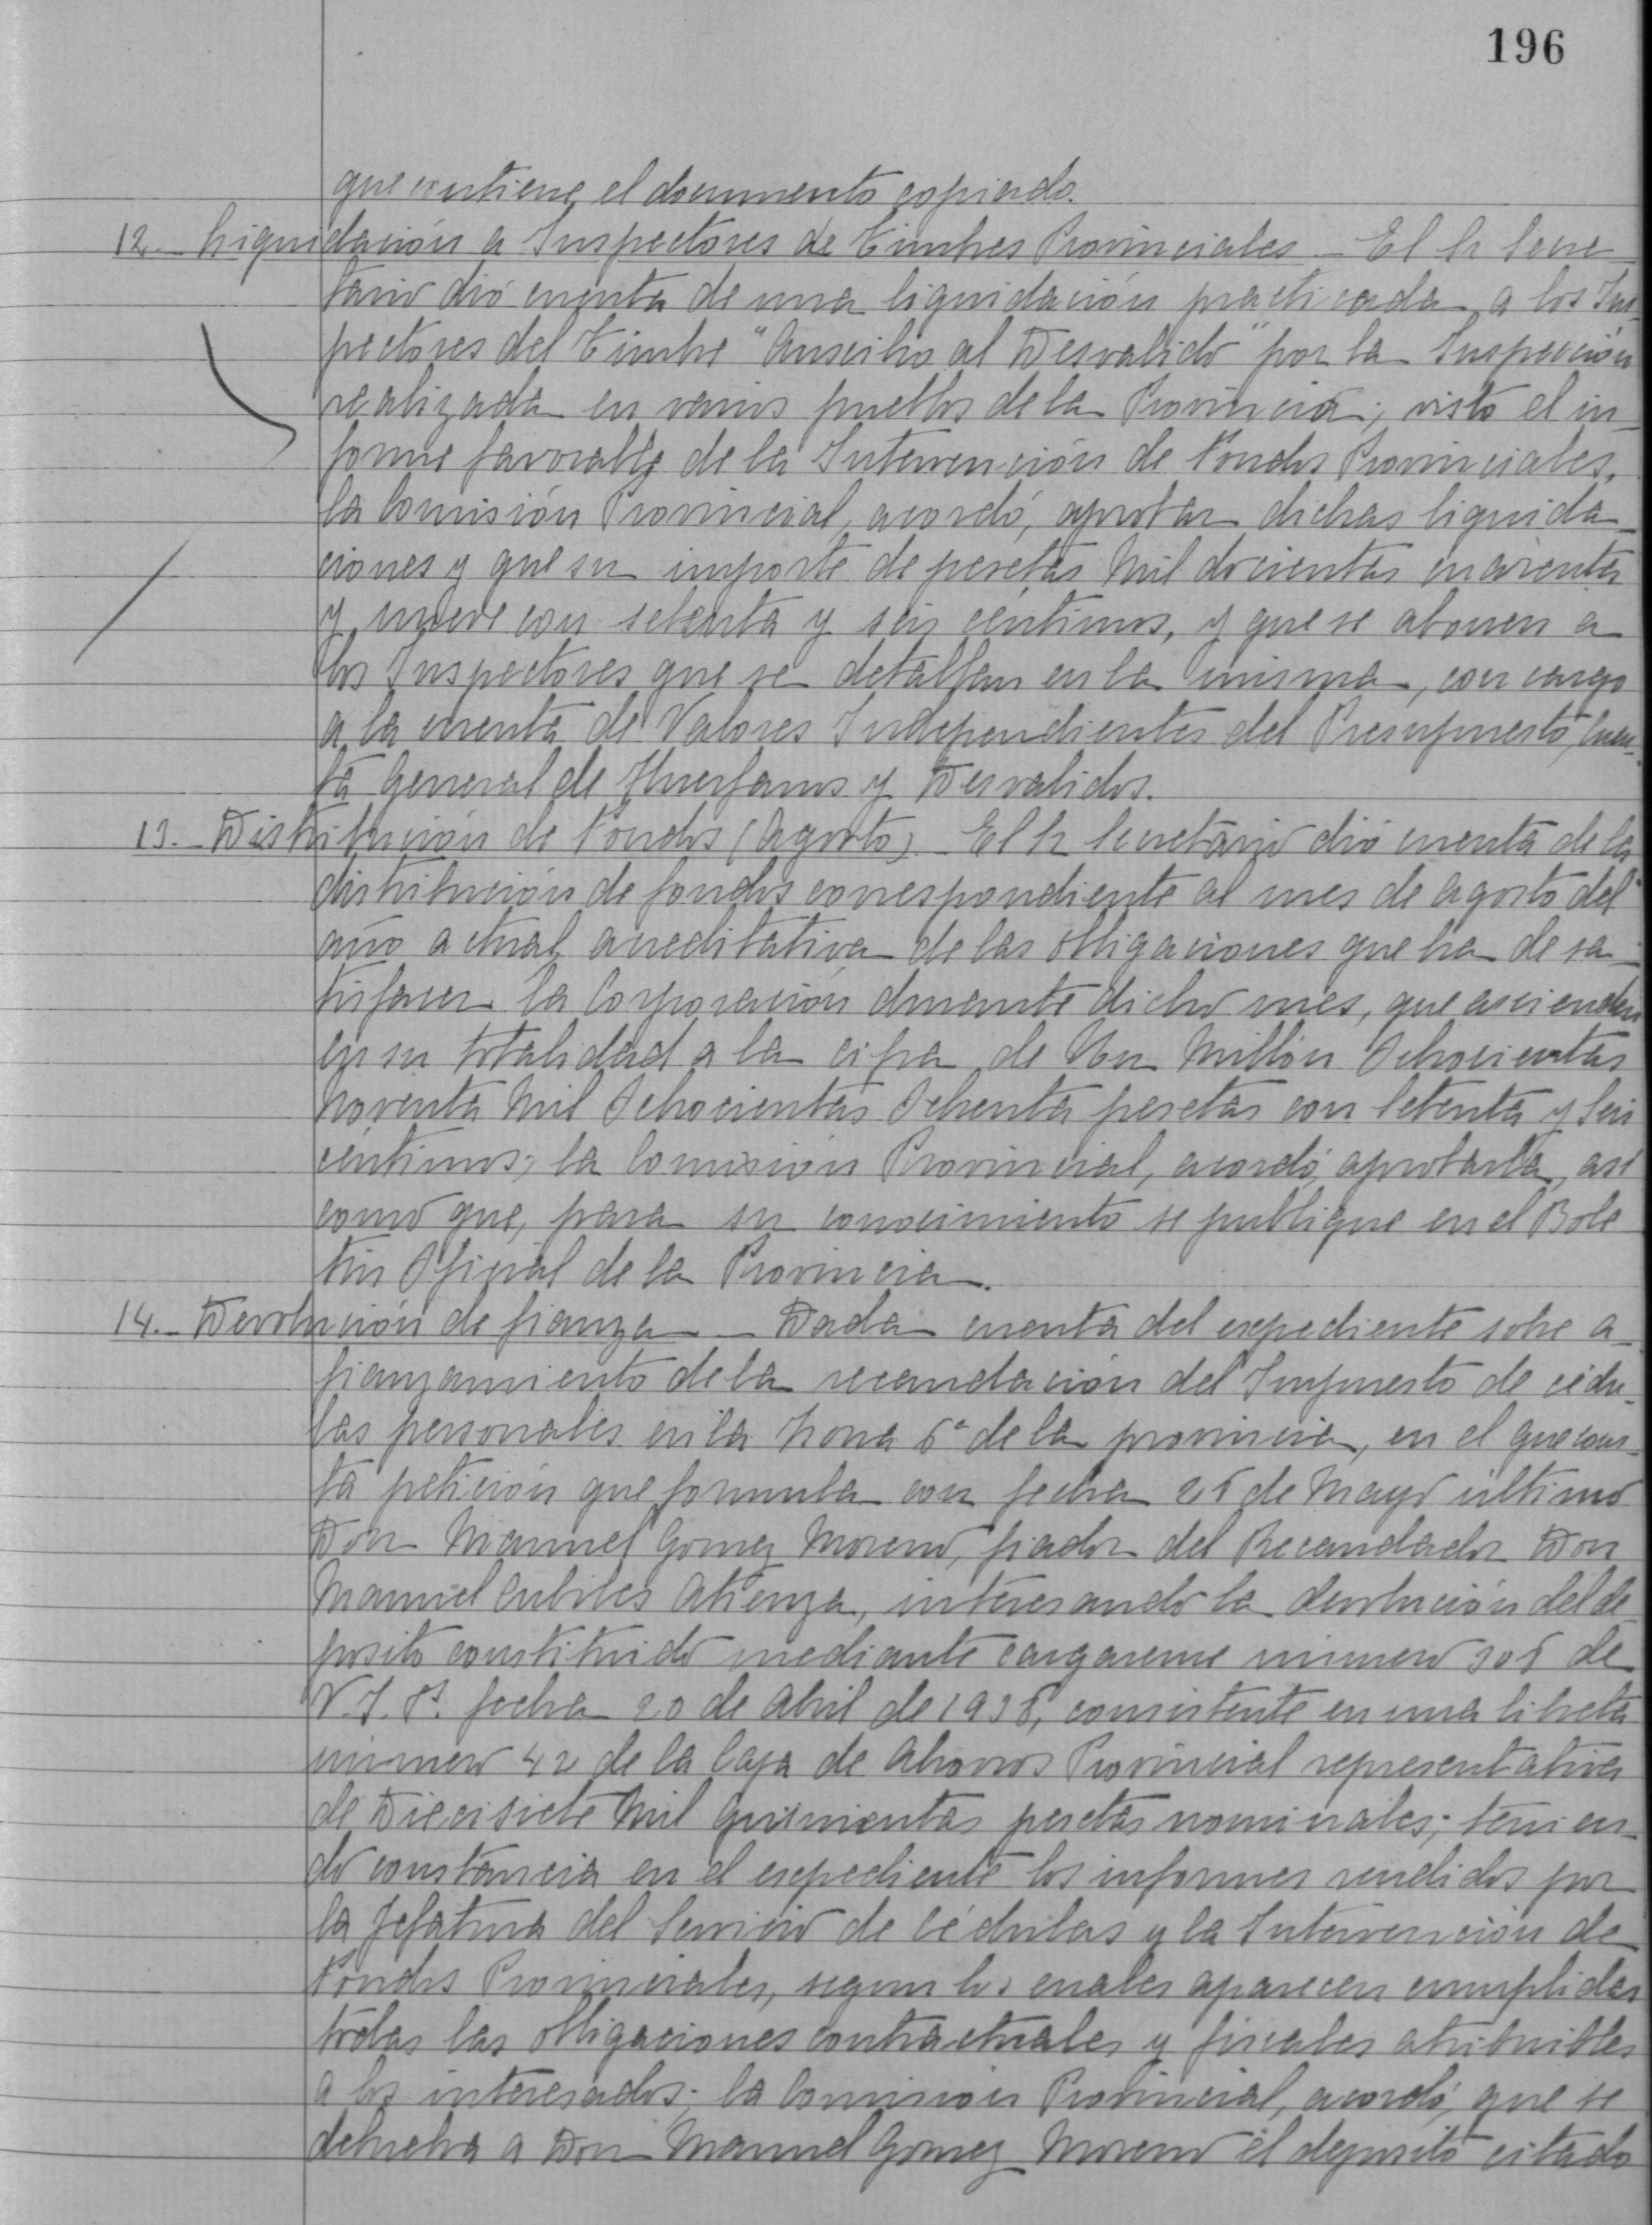 196
que contiene el documento copiado.
12.- Liquidación a Inspectores de Timbres Provinciales.- El Sr Secre-
tario dió cuenta de una liquidación practicada a los Ins-
pectores del Timbre "Auxilio al Desvalido" por la Inspección
realizada en varios pueblos de la Provincia; visto el in-
forme favorable de la Intervención de Fondos Provinciales,
la Comisión Provincial, acordó, aprobar dichas liquida-
ciones y que su importe de pesetas Mil docientas cuarenta
y nueve con setenta y seis céntimos, y que se abonen a
los Inspectores que se detallan en la misma, con cargo
a la cuenta de Valores Independientes del Presupuesto, Cuen-
ta General de Huerfanos y Desvalidos.
13.- Distribución de Fondos (Agosto).- El Sr Secretario dió cuenta de la
distribución de fondos correspondiente al mes de agosto del
año actual, acreditativa de las obligaciones que ha de sa-
tisfacer la Corporación durante dicho mes, que ascienden
en su totalidad a la cifra de Un Millón Ochocientas
Noventa Mil Ochocientas Ochenta pesetas con Setenta y Seis
céntimos; la Comisión Provincial, acordó, aprobarla, así
como que, para su conocimiento se publique en el Bole
tin Oficial de la Provincia.
14.- Devolución de fianza.- Dada cuenta del expediente sobre a-
fianzamiento de la recaudación del Impuesto de cédu-
las personales en la Zona 6ª de la provincia, en el que cons-
ta petición que formula con fecha de Mayo último
Don Manuel Gomez Moreno, fiador del Recaudador Don
Manuel Cubiles Atienza, interesando la devolución del de-
posito constituido mediante cargareme numero de
V.I.P. fecha 20 de Abril de consistente en una libreta
numero 42 de la Caja de Ahorros Provincial representativa
de Diecisiete Mil Quinientas pesetas nominales; tenien-
do constancia en el expediente los informes rendidos por
la Jefatura del Servicio de Cédulas y la Intervención de
Fondos Provinciales, segun los cuales aparecen cumplidas
todas las obligaciones contractuales y fiscales atribuibles
a los interesados; la Comision Provincial, acordó, que se
debuelva a Don Manuel Gomez Moreno el deposito citado